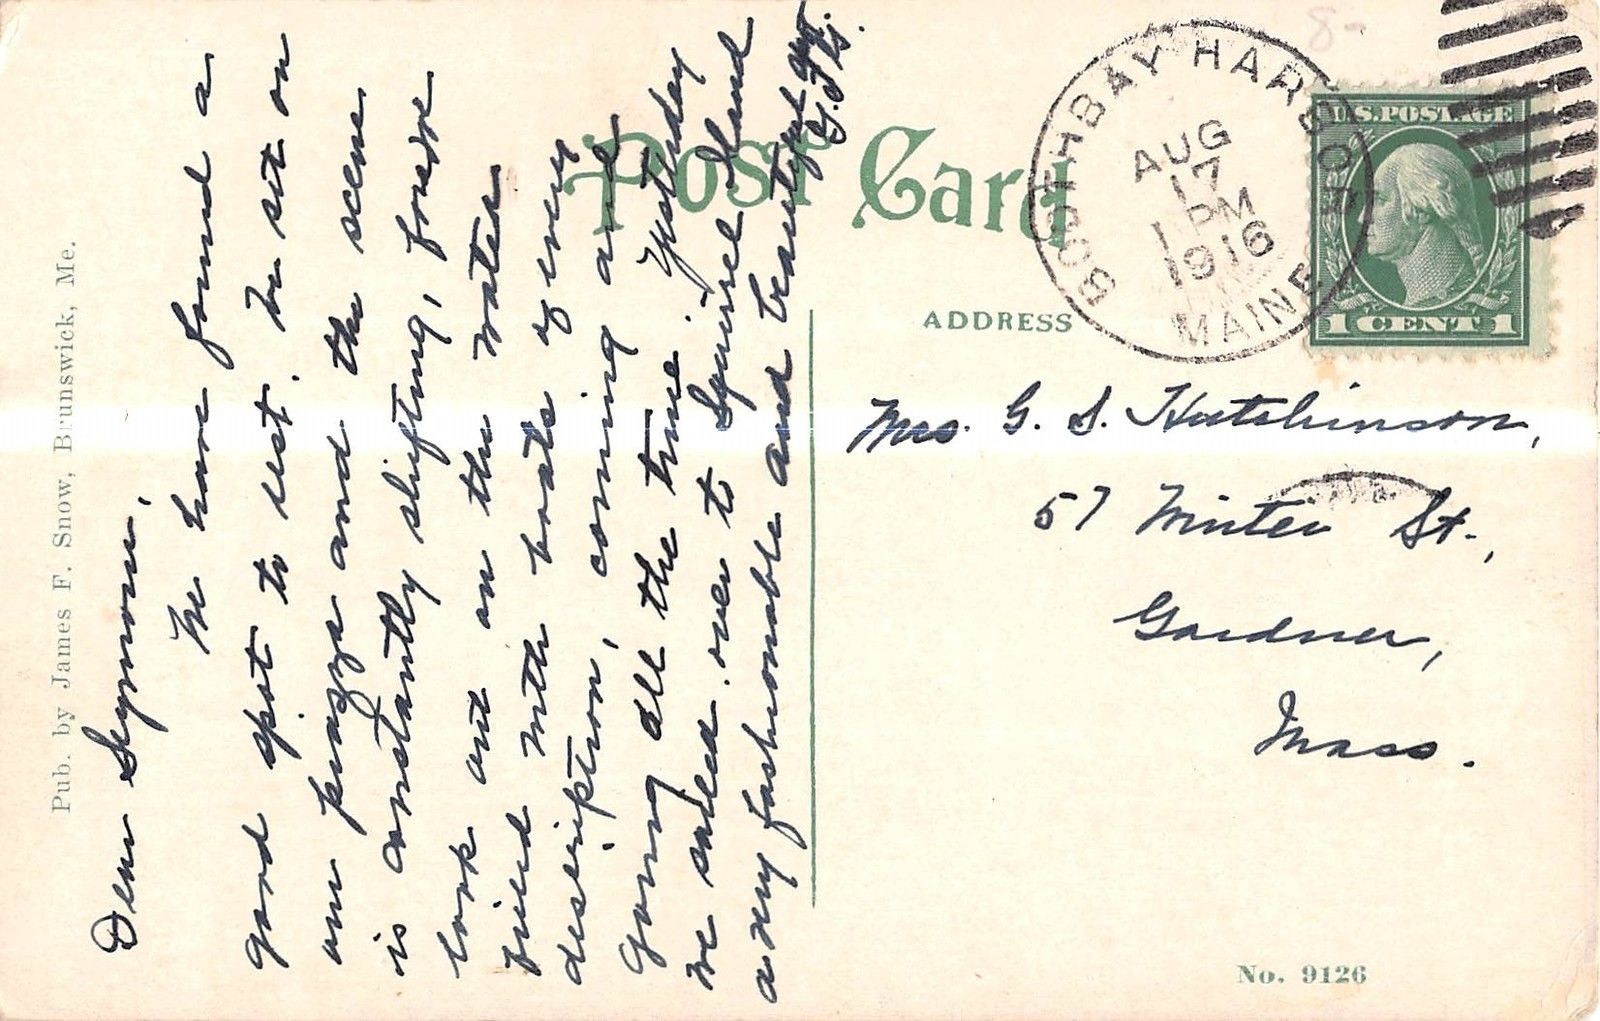 Pub. by James F. Snow, Brunswick, Me.
Post Card
ADDRESS
BOOTHBAY HARBOR
AUG
17
1 PM
1916
MAINE
U.S. POSTAGE
1 CENT 1
8-
Dear Seymour,
We have found a
good spot to rest. We sit on
our piazza and the scene
is constantly shifting, for we
look out on the water
filled with boats of every
description, coming and
going all the time. Yesterday
we sailed over to Squirrel Island
a very fashionable and beautiful
G. F. H.
Mrs. G. S. Hutchinson,
57 Winter St.,
Gardner,
Mass.
No. 9126